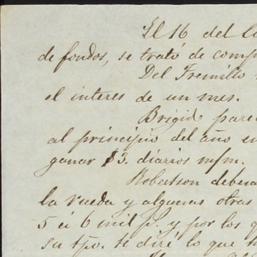 El 16 del
de fondos, se trató de
Del Fresnillo
el interes de un mes.
Brigid
al principio del año en
ganar $3. diarios mfm.
Robertson
la rueda y algunas otras
5 ó 6 mil p. y por los q
su tpo. te diré lo que